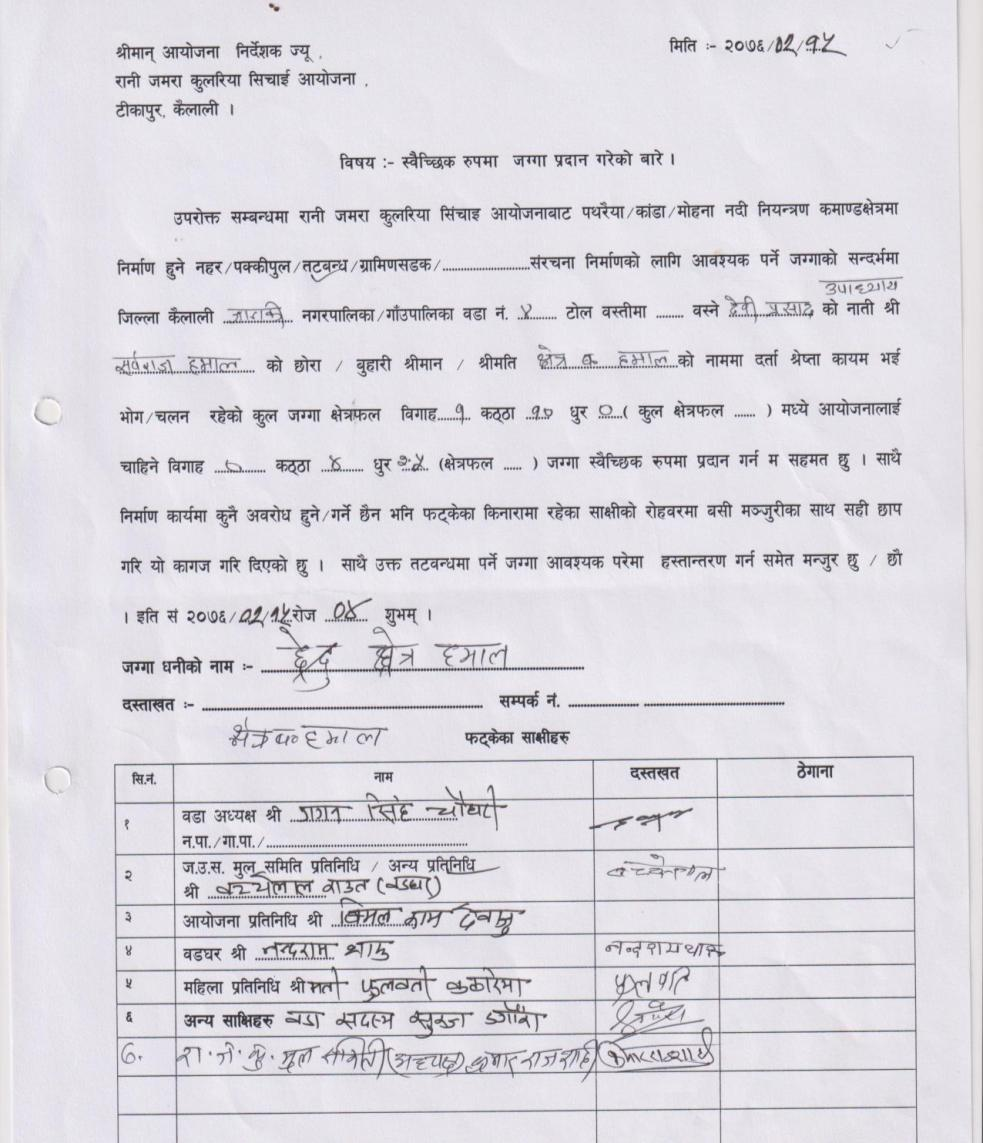 मिति :- २०७६/०२/१५
श्रीमान् आयोजना निर्देशक ज्यू ,
रानी जमरा कुलरिया सिचाई आयोजना ,
टीकापुर, कैलाली ।
विषय :- स्वैच्छिक रुपमा जग्गा प्रदान गरेको बारे ।
उपरोक्त सम्बन्धमा रानी जमरा कुलरिया सिंचाइ आयोजनाबाट पथरैया/कांडा/मोहना नदी नियन्त्रण कमाण्डक्षेत्रमा
निर्माण हुने नहर/पक्कीपुल/तटबन्ध/ग्रामिणसडक/........................संरचना निर्माणको लागि आवश्यक पर्ने जग्गाको सन्दर्भमा
उपाध्याय
जिल्ला कैलाली जानकी नगरपालिका/गाँउपालिका वडा नं. ४ टोल वस्तीमा ........ वस्ने देवी प्रसाद को नाती श्री
सर्वराज हमाल को छोरा / बुहारी श्रीमान / श्रीमति क्षेत्र ब. हमाल को नाममा दर्ता श्रेष्ता कायम भई
भोग/चलन रहेको कुल जग्गा क्षेत्रफल विगाह १ कठ्ठा १० धुर ० ( कुल क्षेत्रफल ...... ) मध्ये आयोजनालाई
चाहिने विगाह ० कठ्ठा ४ धुर २.५ (क्षेत्रफल ..... ) जग्गा स्वैच्छिक रुपमा प्रदान गर्न म सहमत छु । साथै
निर्माण कार्यमा कुनै अवरोध हुने/गर्ने छैन भनि फट्केका किनारामा रहेका साक्षीको रोहवरमा वसी मञ्जुरीका साथ सही छाप
गरि यो कागज गरि दिएको छु । साथै उक्त तटवन्धमा पर्ने जग्गा आवश्यक परेमा हस्तान्तरण गर्न समेत मन्जुर छु / छौ
। इति सं २०७६/०२/१५ रोज ०४ शुभम् ।
जग्गा धनीको नाम :- क्षेत्र हमाल
दस्ताखत :- .......................................................... सम्पर्क नं. ..............................................
क्षेत्र ब. हमाल फट्केका साक्षीहरु
सि.नं. नाम दस्तखत ठेगाना
१ वडा अध्यक्ष श्री गगन सिंह चौधरी
न.पा./गा.पा./..........................................
२ ज.उ.स. मुल समिति प्रतिनिधि / अन्य प्रतिनिधि
श्री बच्चेलाल राउत (बडघर)
३ आयोजना प्रतिनिधि श्री बिमल काम
४ वडघर श्री नन्दराम थारु नन्दराम थारु
५ महिला प्रतिनिधि श्रीमती फुलवती फुलवति
६ अन्य साक्षिहरु वडा सदस्य सुरज डगौरा
७. रा.ज.कु. मुल समिति (अध्यक्ष) कुमार राज शाही